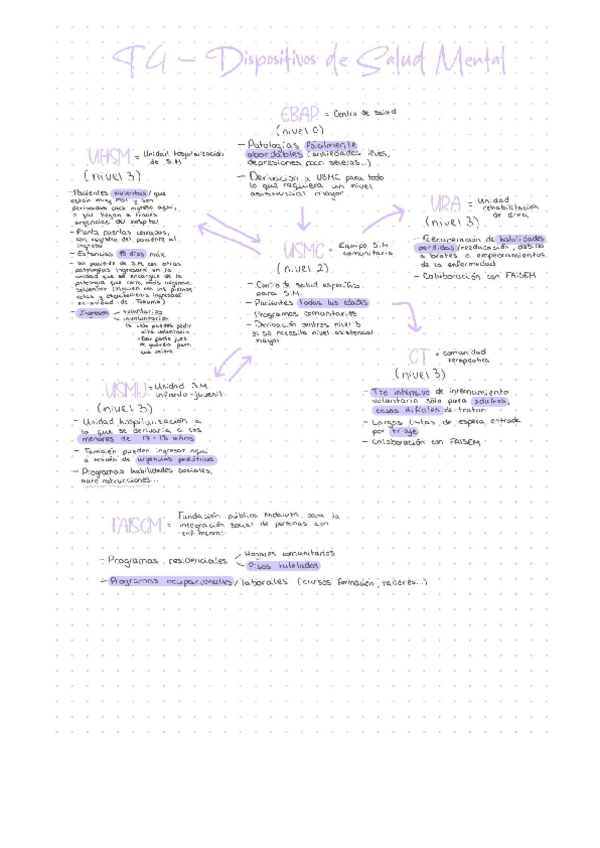 T4 - Dispositivos de Salud Mental
EBAP = Centro de salud
(nivel 0)
- Patologías fácilmente
abordables (ansiedades leves,
depresiones poco severas...)
- Derivación a USMC para todo
lo que requiera un nivel
asistencial mayor
UHSM = Unidad hospitalización
de S.M.
(nivel 3)
- Pacientes violentos / que
están muy mal y son
derivados para ingreso aquí,
o que llegan a través
urgencias del hospital
- Planta puertas cerradas,
con registro del paciente al
ingreso
- Estancias 15 días máx.
- Un paciente de S.M con otras
patologías ingresará en la
unidad que se encargue de la
patología que corra más urgencia
solventar (alguien con las piernas
rotas y esquizofrenia ingresará
en unidad de Trauma)
- Ingresos
voluntarios
involuntarios
alta voluntaria
URA = Unidad
rehabilitación
de área
(nivel 3)
- Recuperación de habilidades
perdidas / reeducación, debido
a brotes o empeoramientos
de la enfermedad
- Colaboración con FAISEM
USMC = Equipo S.M.
comunitaria
(nivel 2)
- Centro de salud específico
para S.M.
- Pacientes todas las edades
- Programas comunitarios
- Derivación centros nivel 3
si se necesita nivel asistencial
mayor
CT = comunidad
terapéutica
(nivel 3)
- Tto intensivo de internamiento
voluntario sólo para adultos,
casos difíciles de tratar
- Largas listas de espera, entrada
por triaje
- Colaboración con FAISEM
USMIJ = Unidad S.M.
infanto-juvenil
(nivel 3)
- Unidad hospitalización a
la que se derivaría a los
menores de 17-18 años
- También pueden ingresar aquí
a través de urgencias pediátricas
- Programas habilidades sociales,
autoinstrucciones...
FAISEM = Fundación pública Andaluza para la
integración social de personas con
enf. mental
- Programas residenciales
Hogares comunitarios
Pisos tutelados
- Programas ocupacionales / laborales (cursos formación, talleres...)